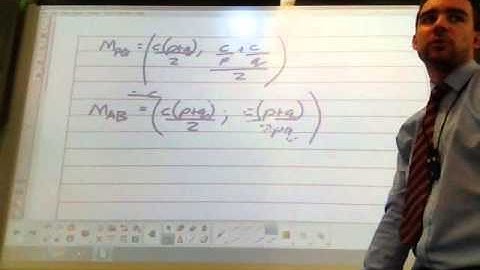 M_PQ = (c(p+q)/2 ; (c/p + c/q)/2)
M_AB = (c(p+q)/2 ; c(p+q)/2pq)